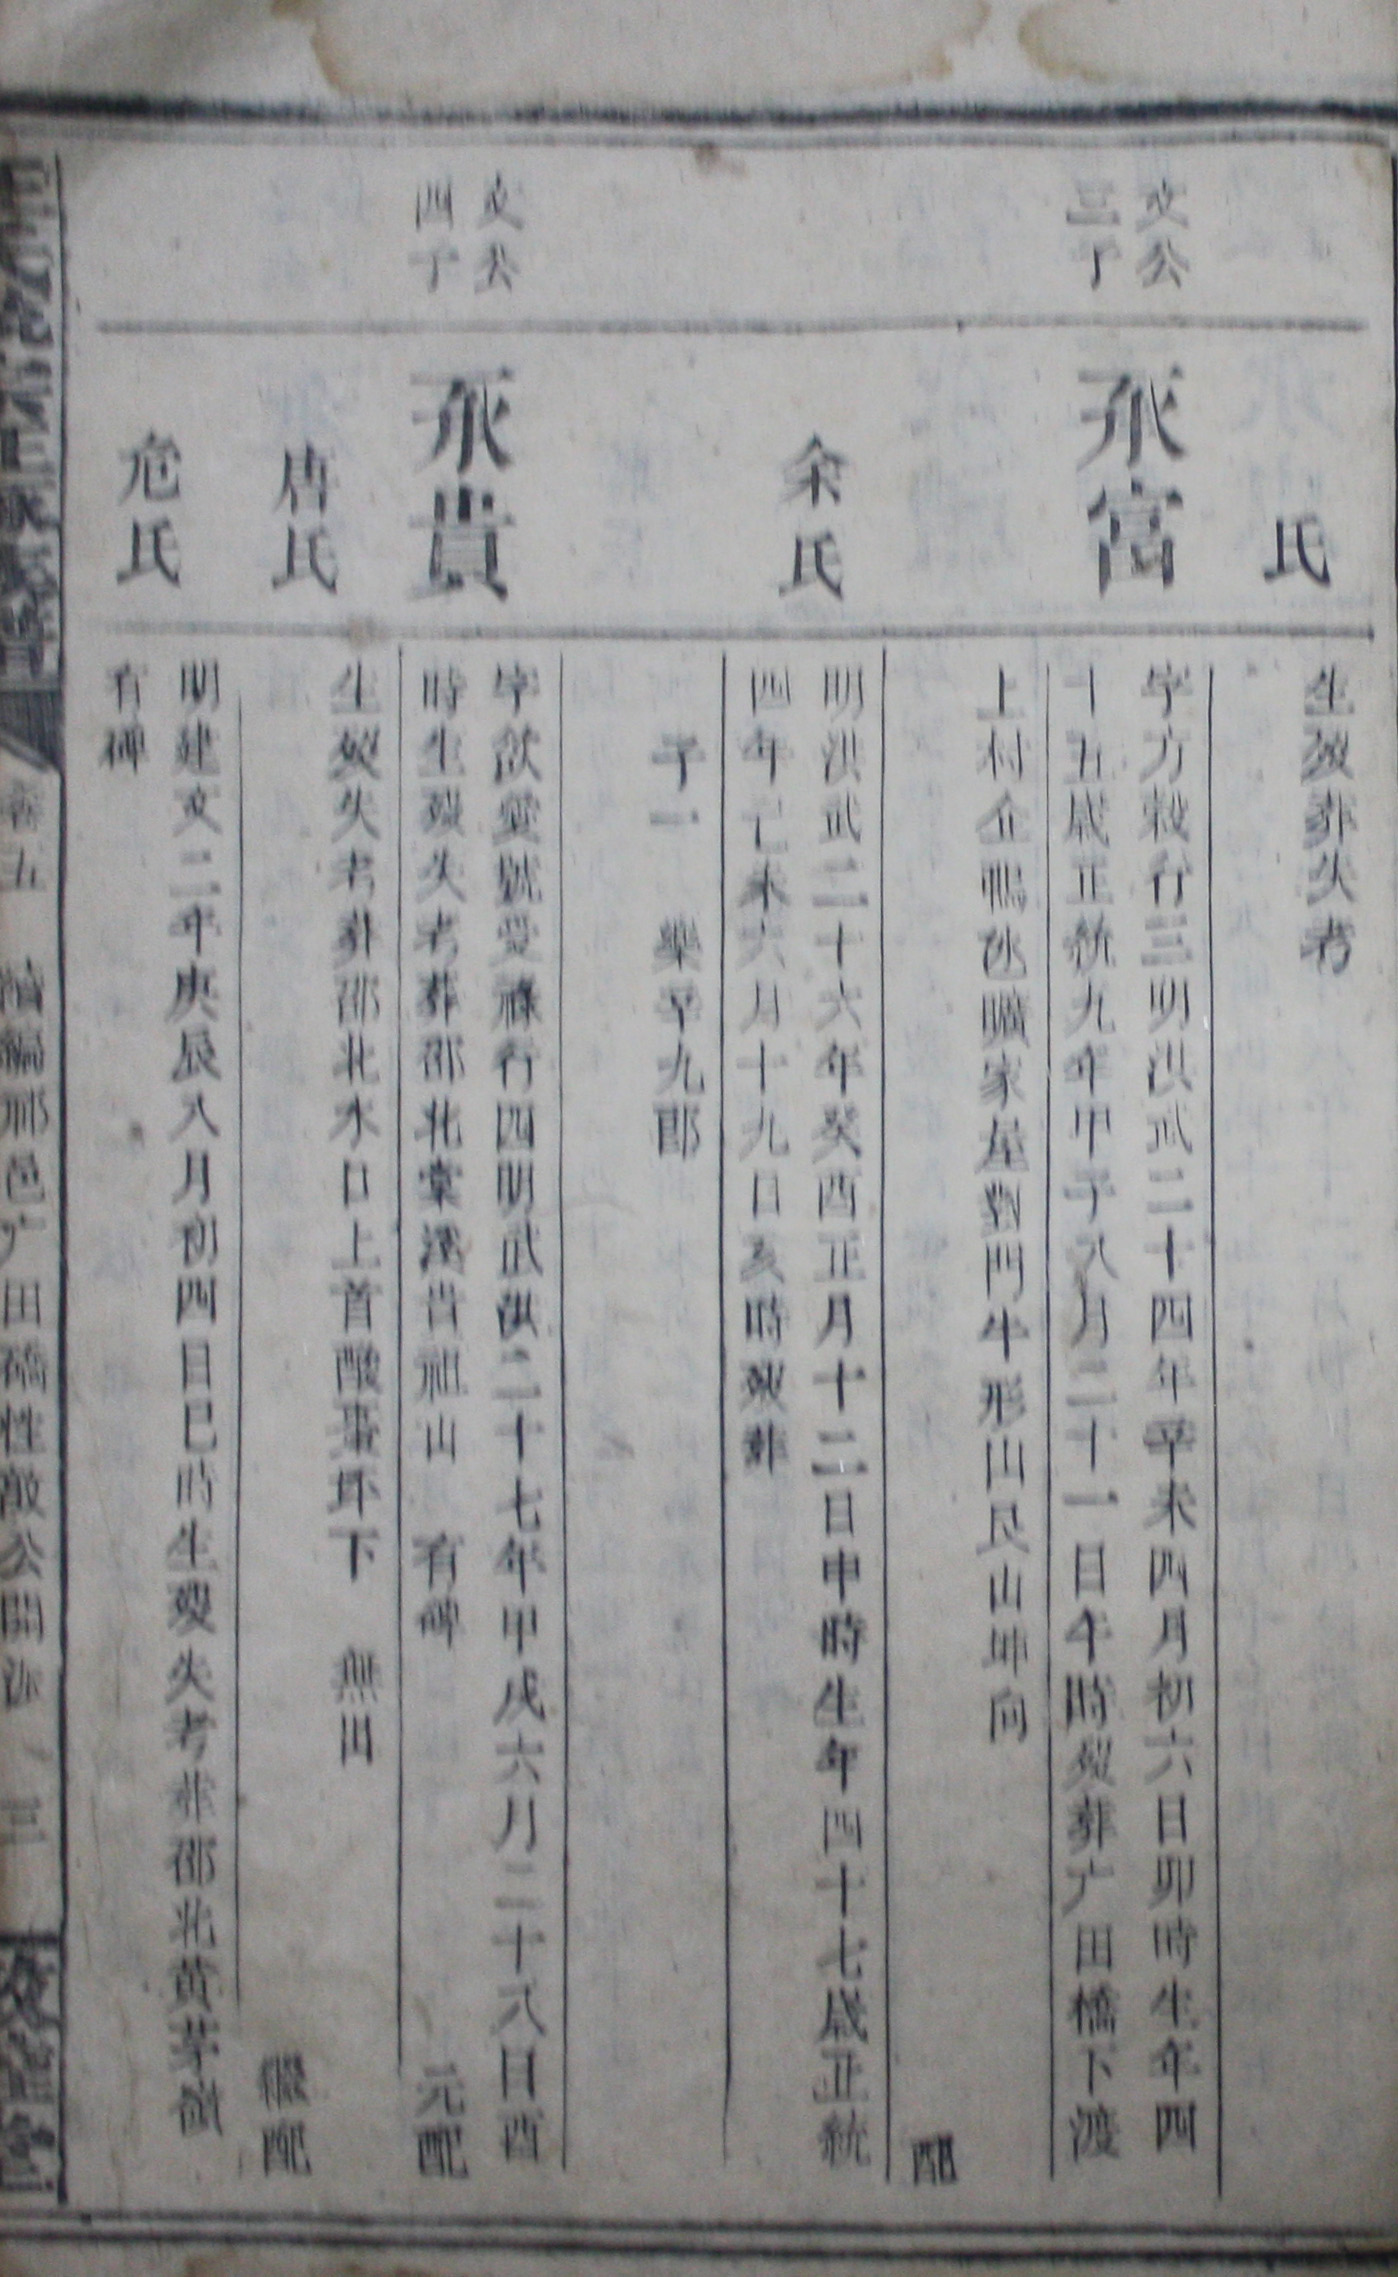 氏
生歿葬失考
文公
三子
永富
字方穀行三明洪武二十四年辛未四月初六日卯時生年四
十五歳正統九年甲子八月二十一日午時歿葬广田橋下渡
上村企鴨氹曠家屋對門牛形山艮山坤向
配
余氏
明洪武二十六年癸酉正月十二日申時生年四十七歳正統
四年己未六月十九日亥時歿葬
子一 樂平九郎
文公
四子
永貴
字欽愛號受祿行四明武洪二十七年甲戌六月二十八日酉
時生歿失考葬邵北棠溪昔祖山 有碑
元配
唐氏
生歿失考葬邵北水口上首酸棗坏下 無田
繼配
危氏
明建文二年庚辰八月初四日巳時生歿失考葬邵北黄茅嶺
有碑
卷五 續編邢邑广田橋性敵公開派 三